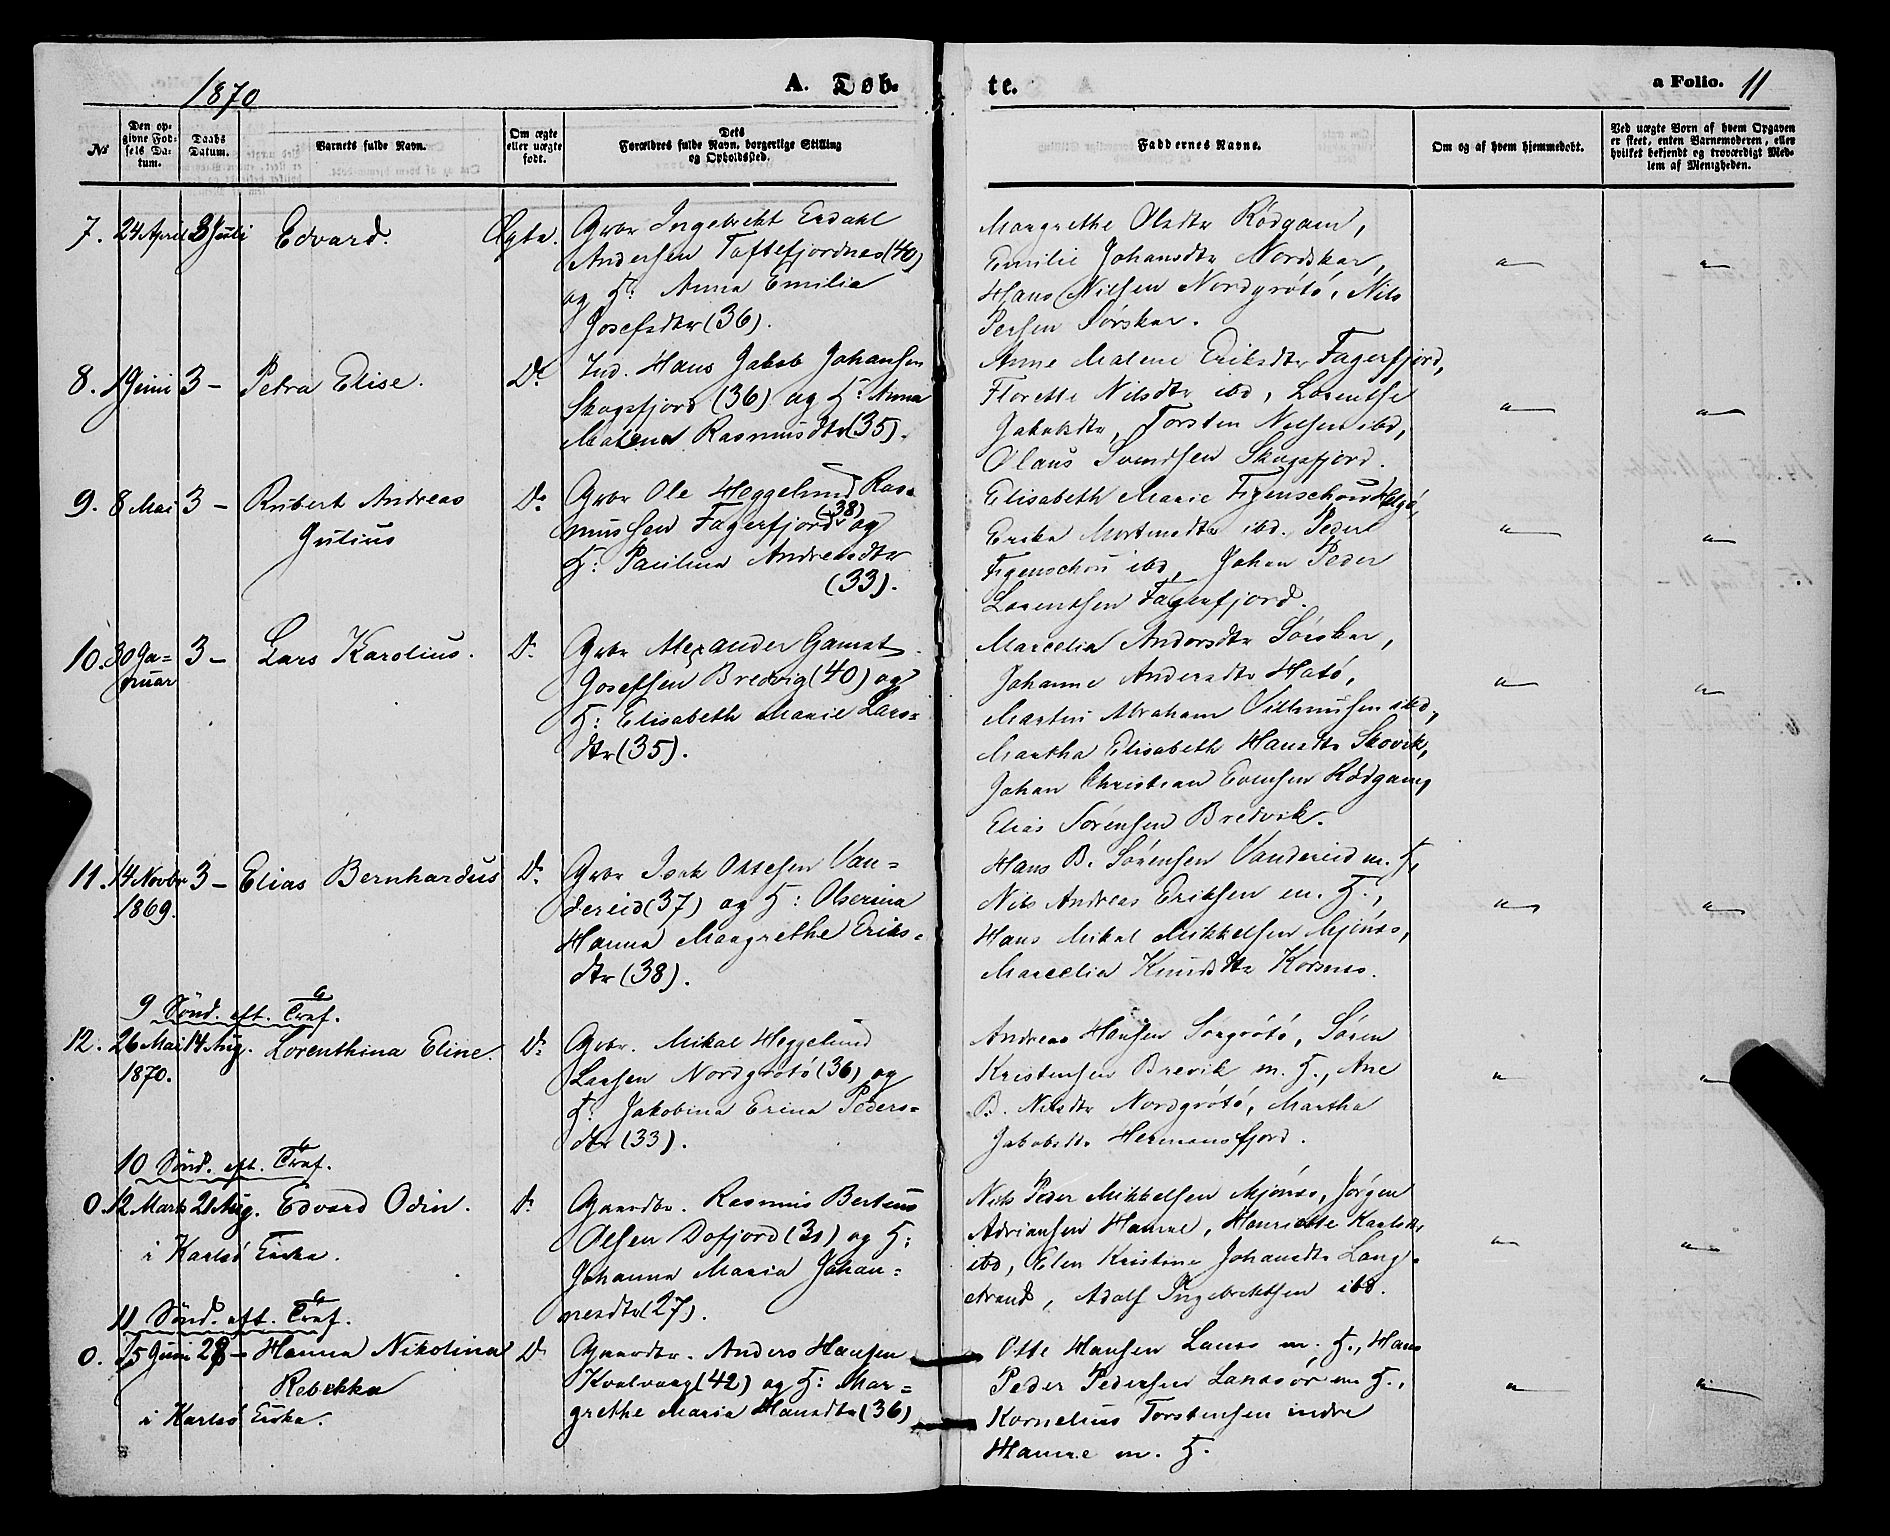 1870
A. Døb-
te.
a Folio. 11
No
Den op-
givne Fød-
sels Da-
tum.
Daabs
Datum.
Barnets fulde Navn.
Om ægte
eller uægte
født.
Dets
Forældres fulde Navn, borgerlige Stilling
og Opholdssted.
Faddernes Navne.
Om og af hvem hjemmedøbt.
Ved uægte Børn af hvem Opgaven
er skeet, enten Barnemoderen, eller
hvilket bekjendt og troværdigt Med-
lem af Menigheden.
7. 24 April 3 Juli Edvard. Ægte.
Gbr Ingebrikt Erdahl
Andersen Toftefjordnes (40)
og H: Anna Emilia
Josefsdtr (36).
Margrethe Olsdtr Rødgam,
Emilie Johansdtr Nordskar,
Hans Nilsen Nordgrøtø, Nils
Persen Sørskar.
8. 1 Juni 3 - Petra Elise. Do
Ind. Hans Jakob Johansen
Skogsfjord (36) og H: Anna
Malena Rasmusdtr (35).
Anne Malene Eriksdtr Fagerfjord,
Florette Nilsdtr ibd, Lorentse
Jakobsdtr, Torsten Nilsen ibd,
Olaus Svendsen Skogsfjord.
9. 8 Mai 3 - Robert Andreas
Julius
Do
Gbr Ole Heggelund Ras-
mussen Fagerfjord (38) og
H: Paulina Andreasdtr
(33).
Elisabeth Marie Figenschou Helgø,
Erika Mortensdtr ibd. Peder
Figenschou ibd, Johan Peder
Lorentsen Fagerfjord.
10. 30 Ja-
nuar
3 - Lars Karolius. Do
Gbr Alexander Gamst
Josefsen Bredvig (40) og
H: Elisabeth Marie Lars-
dtr (35).
Marcelia Andersdtr Sørskar,
Johanne Andersdtr Hatø,
Martin Abraham Villumsen ibd,
Martha Elisabeth Hansdtr Skovik,
Johan Christian Evensen Rødgam,
Elias Sørensen Bredvik.
11. 14 Novbr
1869.
3 - Elias Bernhardus Do
Gbr Isak Ottesen Van-
dereid (37) og H: Olserina
Hanna Margrethe Eriks-
dtr (38).
Hans B. Sørensen Vandereid m. H.,
Nils Andreas Eriksen m. H.,
Hans Mikal Mikkelsen Mjønes,
Marcelia Knudsdtr Korsnes.
9 Sønd. eft. Tref.
12. 26 Mai
1870.
14 Aug. Lorenthina Eline. Do
Gbr. Mikal Heggelund
Larsen Nordgrøtø (36) og
H: Jakobina Erina Peders-
dtr (33).
Andreas Hansen Sørgrøtø, Søren
Kristensen Brevik m. H., Ane
B. Nilsdtr Nordgrøtø, Martha
Jakobsdtr Hermansfjord.
10 Sønd. eft. Tref.
0. 12 Marts 21 Aug. Edvard Odin. Do
i Karlsø Kirke.
Gaardbr. Rasmus Berteus
Olsen Dafjord (31) og H:
Johanna Maria Johan-
nesdtr (27).
Nils Peder Mikkelsen Mjønes, Jørgen
Adriansen Hamre, Henriette Karlsdtr
ibd, Elen Kristine Johansdtr Lang-
strand, Adolf Ingebriktsen ibd.
11 Sønd. eft. Tref.
0. 25 Juni 28 - Hanna Nikolina
Rebekka
i Karlsø Kirke.
Do
Gaardbr. Anders Hansen
Kvalvaag (42) og H: Mar-
grethe Maria Hansdtr (36)
Otte Hansen Lanes m. H., Hans
Peder Pedersen Lanesør m H.,
Kornelius Torstensen indre
Hamre m. H.